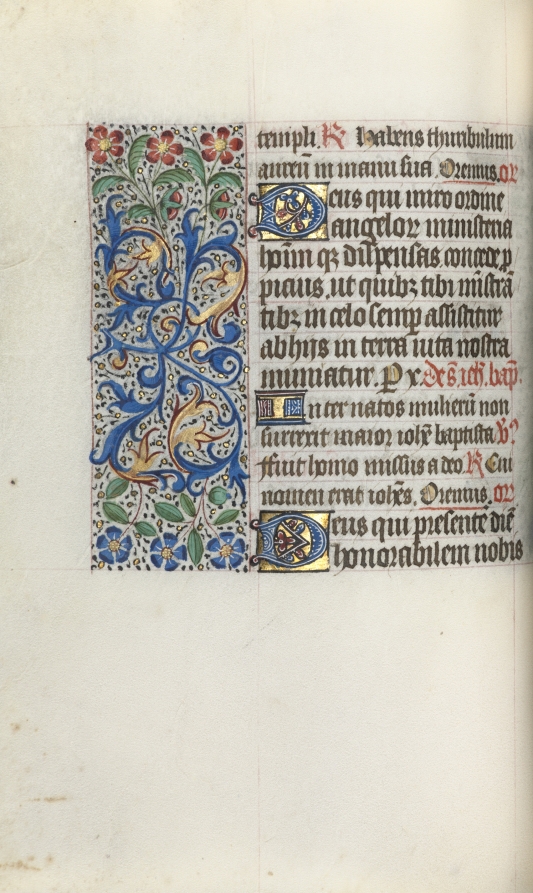 templi. R Habens thuribulum
aureū in manu sua. Oremus. or
Deus qui miro ordine
angeloꝝ ministeria
hoīm qꝫ dispensas. concede ꝓ
picius, ut quibꝫ tibi mīstrā
tibꝫ in celo semꝑ assistitur
ab hijs in terra uita nostra
muniatur. P x. De s. ioh. bap.
Inter natos mulierū non
surrexit maior iohe baptista. V
ffuit homo missus a deo. R Cui
nomen erat iohēs. Oremus. or
Deus qui presentē diē
honorabilem nobis